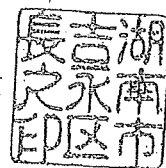 湖南市
吉永区
長之印